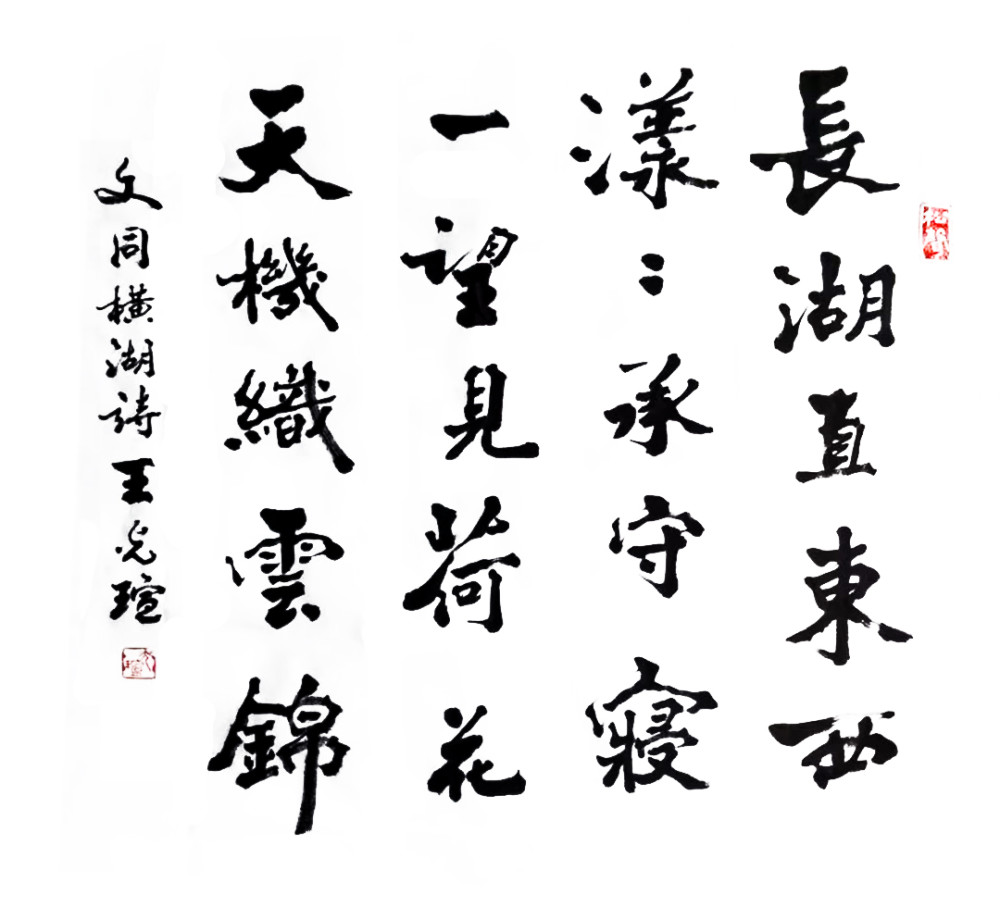 長湖直東西
漾:承守寢
一望見荷花
天機織雲錦
文同橫湖詩王光瑄